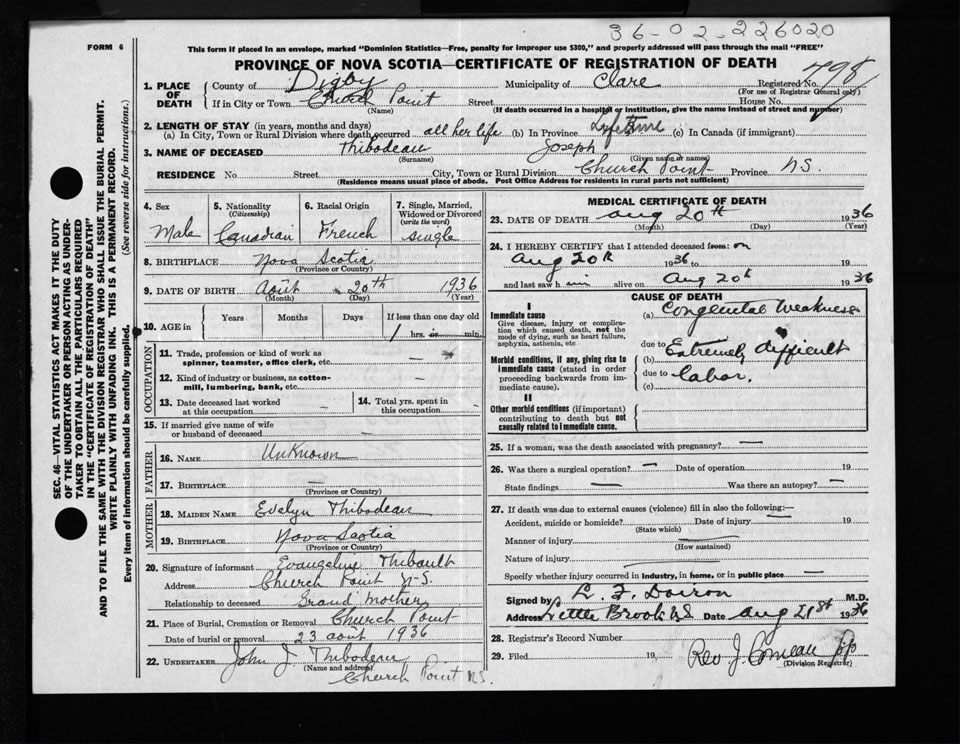 36-02-226020
FORM 6
This form if placed in an envelope, marked "Dominion Statistics—Free, penalty for improper use $300," and properly addressed will pass through the mail "FREE"
PROVINCE OF NOVA SCOTIA—CERTIFICATE OF REGISTRATION OF DEATH
1. PLACE OF DEATH
County of Digby Municipality of Clare Registered No. 498
(For use of Registrar General only)
If in City or Town Church Point Street House No.
(Name) (If death occurred in a hospital or institution, give the name instead of street and number)
2. LENGTH OF STAY (in years, months and days)
(a) In City, Town or Rural Division where death occurred all her life (b) In Province Lifetime (c) In Canada (if immigrant)
3. NAME OF DECEASED Thibodeau Joseph
(Surname) (Given name or names)
RESIDENCE No Street City, Town or Rural Division Church Point Province N.S.
(Residence means usual place of abode. Post Office Address for residents in rural parts not sufficient)
SEC. 46—VITAL STATISTICS ACT MAKES IT THE DUTY
OF THE UNDERTAKER OR PERSON ACTING AS UNDER-
TAKER TO OBTAIN ALL THE PARTICULARS REQUIRED
IN THE "CERTIFICATE OF REGISTRATION OF DEATH"
AND TO FILE THE SAME WITH THE DIVISION REGISTRAR WHO SHALL ISSUE THE BURIAL PERMIT.
WRITE PLAINLY WITH UNFADING INK. THIS IS A PERMANENT RECORD.
Every item of information should be carefully supplied. (See reverse side for instructions.)
4. Sex 5. Nationality (Citizenship) 6. Racial Origin 7. Single, Married, Widowed or Divorced (write the word)
Male Canadian French single
8. BIRTHPLACE Nova Scotia
(Province or Country)
9. DATE OF BIRTH Août 20th 1936
(Month) (Day) (Year)
10. AGE in Years Months Days If less than one day old
1 hrs. or min.
OCCUPATION
11. Trade, profession or kind of work as
spinner, teamster, office clerk, etc. —
12. Kind of industry or business, as cotton-
mill, lumbering, bank, etc. —
13. Date deceased last worked
at this occupation — 14. Total yrs. spent in
this occupation —
15. If married give name of wife
or husband of deceased —
FATHER
16. NAME Unknown
17. BIRTHPLACE —
(Province or Country)
MOTHER
18. MAIDEN NAME Evelyn Thibodeau
19. BIRTHPLACE Nova Scotia
(Province or Country)
20. Signature of informant Evangeline Thibault
Address Church Point N-S.
Relationship to deceased Grand mother
21. Place of Burial, Cremation or Removal Church Point
Date of burial or removal 23 août 1936
22. UNDERTAKER John J Thibodeau
(Name and address)
Church Point N.S.
MEDICAL CERTIFICATE OF DEATH
23. DATE OF DEATH Aug 20th 1936
(Month) (Day) (Year)
24. I HEREBY CERTIFY that I attended deceased from: on
Aug 20th 1936 to 19
and last saw him alive on Aug 20th 1936
CAUSE OF DEATH
I
Immediate cause
Give disease, injury or complica-
tion which caused death, not the
mode of dying, such as heart failure,
asphyxia, asthenia, etc
(a) Congenital Weakness
due to
Morbid conditions, if any, giving rise to
immediate cause (stated in order
proceeding backwards from im-
mediate cause).
(b) Extremely difficult
due to labor.
(c)
II
Other morbid conditions (if important)
contributing to death but not
causally related to immediate cause.
25. If a woman, was the death associated with pregnancy? —
26. Was there a surgical operation? — Date of operation 19
State findings — Was there an autopsy? —
27. If death was due to external causes (violence) fill in also the following:—
Accident, suicide or homicide? Date of injury — 19
(State which)
Manner of injury
(How sustained)
Nature of injury
Specify whether injury occurred in industry, in home, or in public place —
Signed by L. F. Doiron M.D.
Address Little Brook N.S. Date Aug 21st 1936
28. Registrar's Record Number
29. Filed 19 Rev J. Comeau p.p
(Division Registrar)